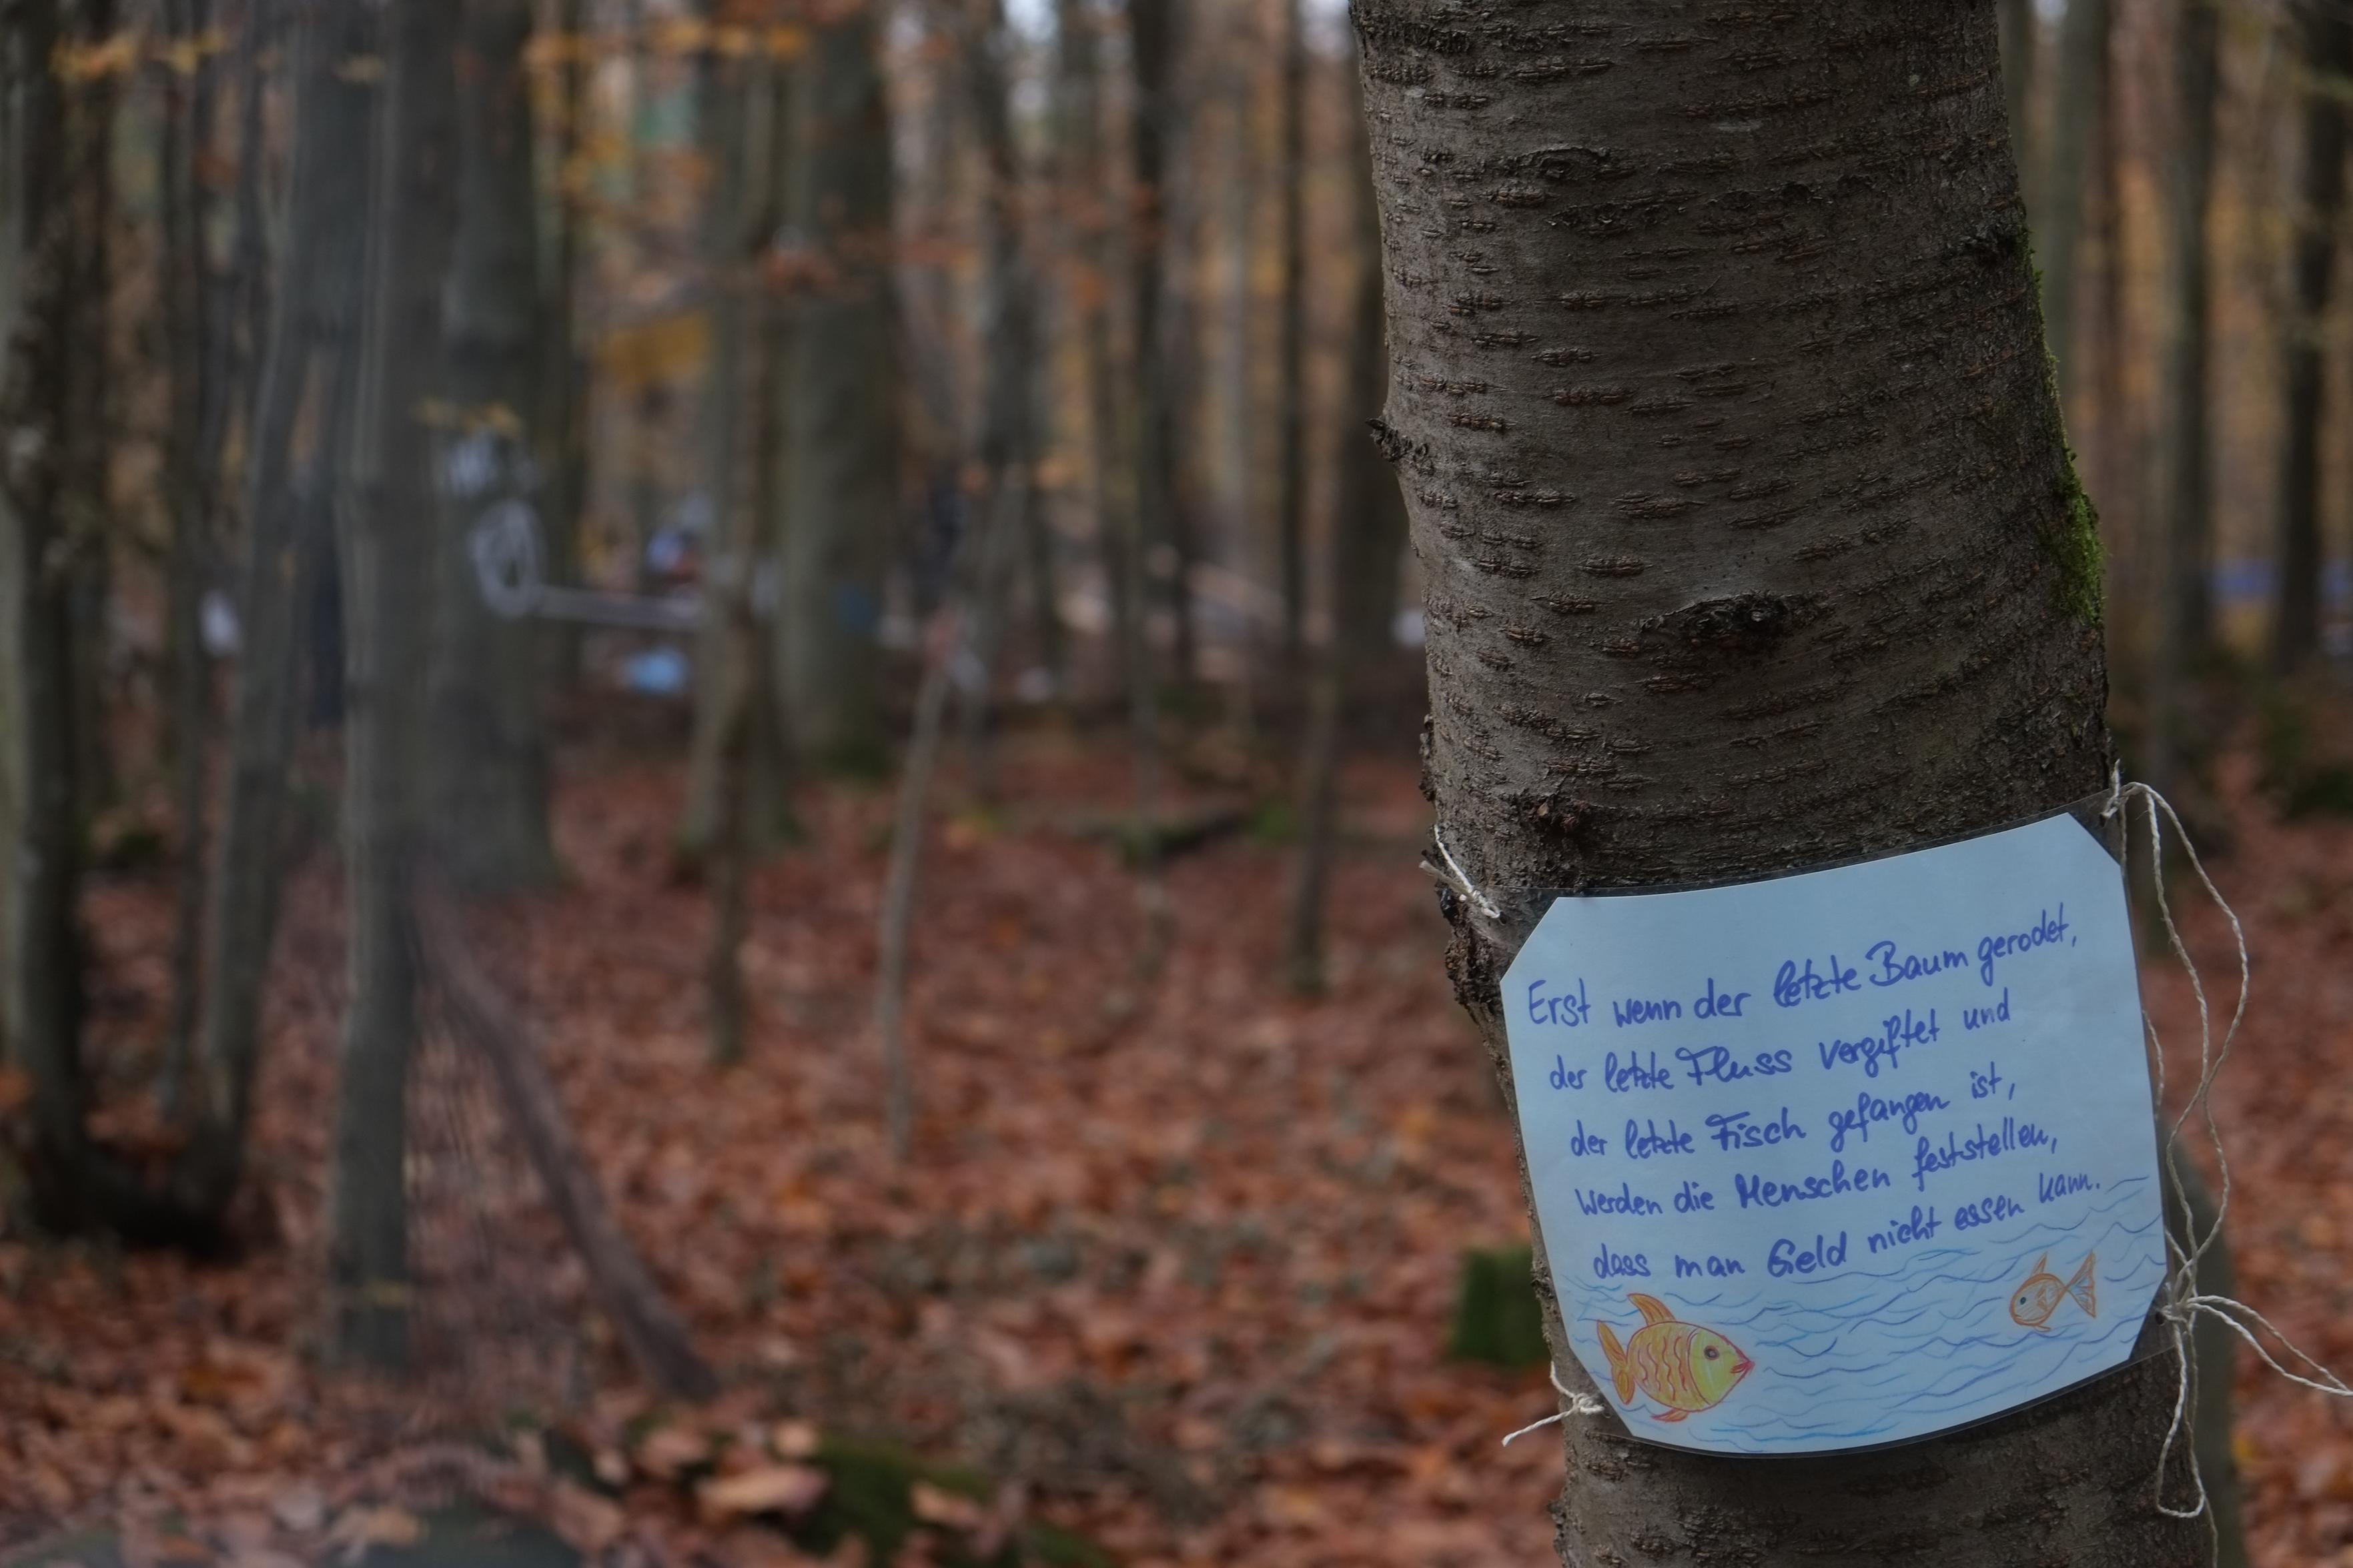 Erst wenn der letzte Baum gerodet,
der letzte Fluss vergiftet und
der letzte Fisch gefangen ist,
werden die Menschen feststellen,
dass man Geld nicht essen kann.